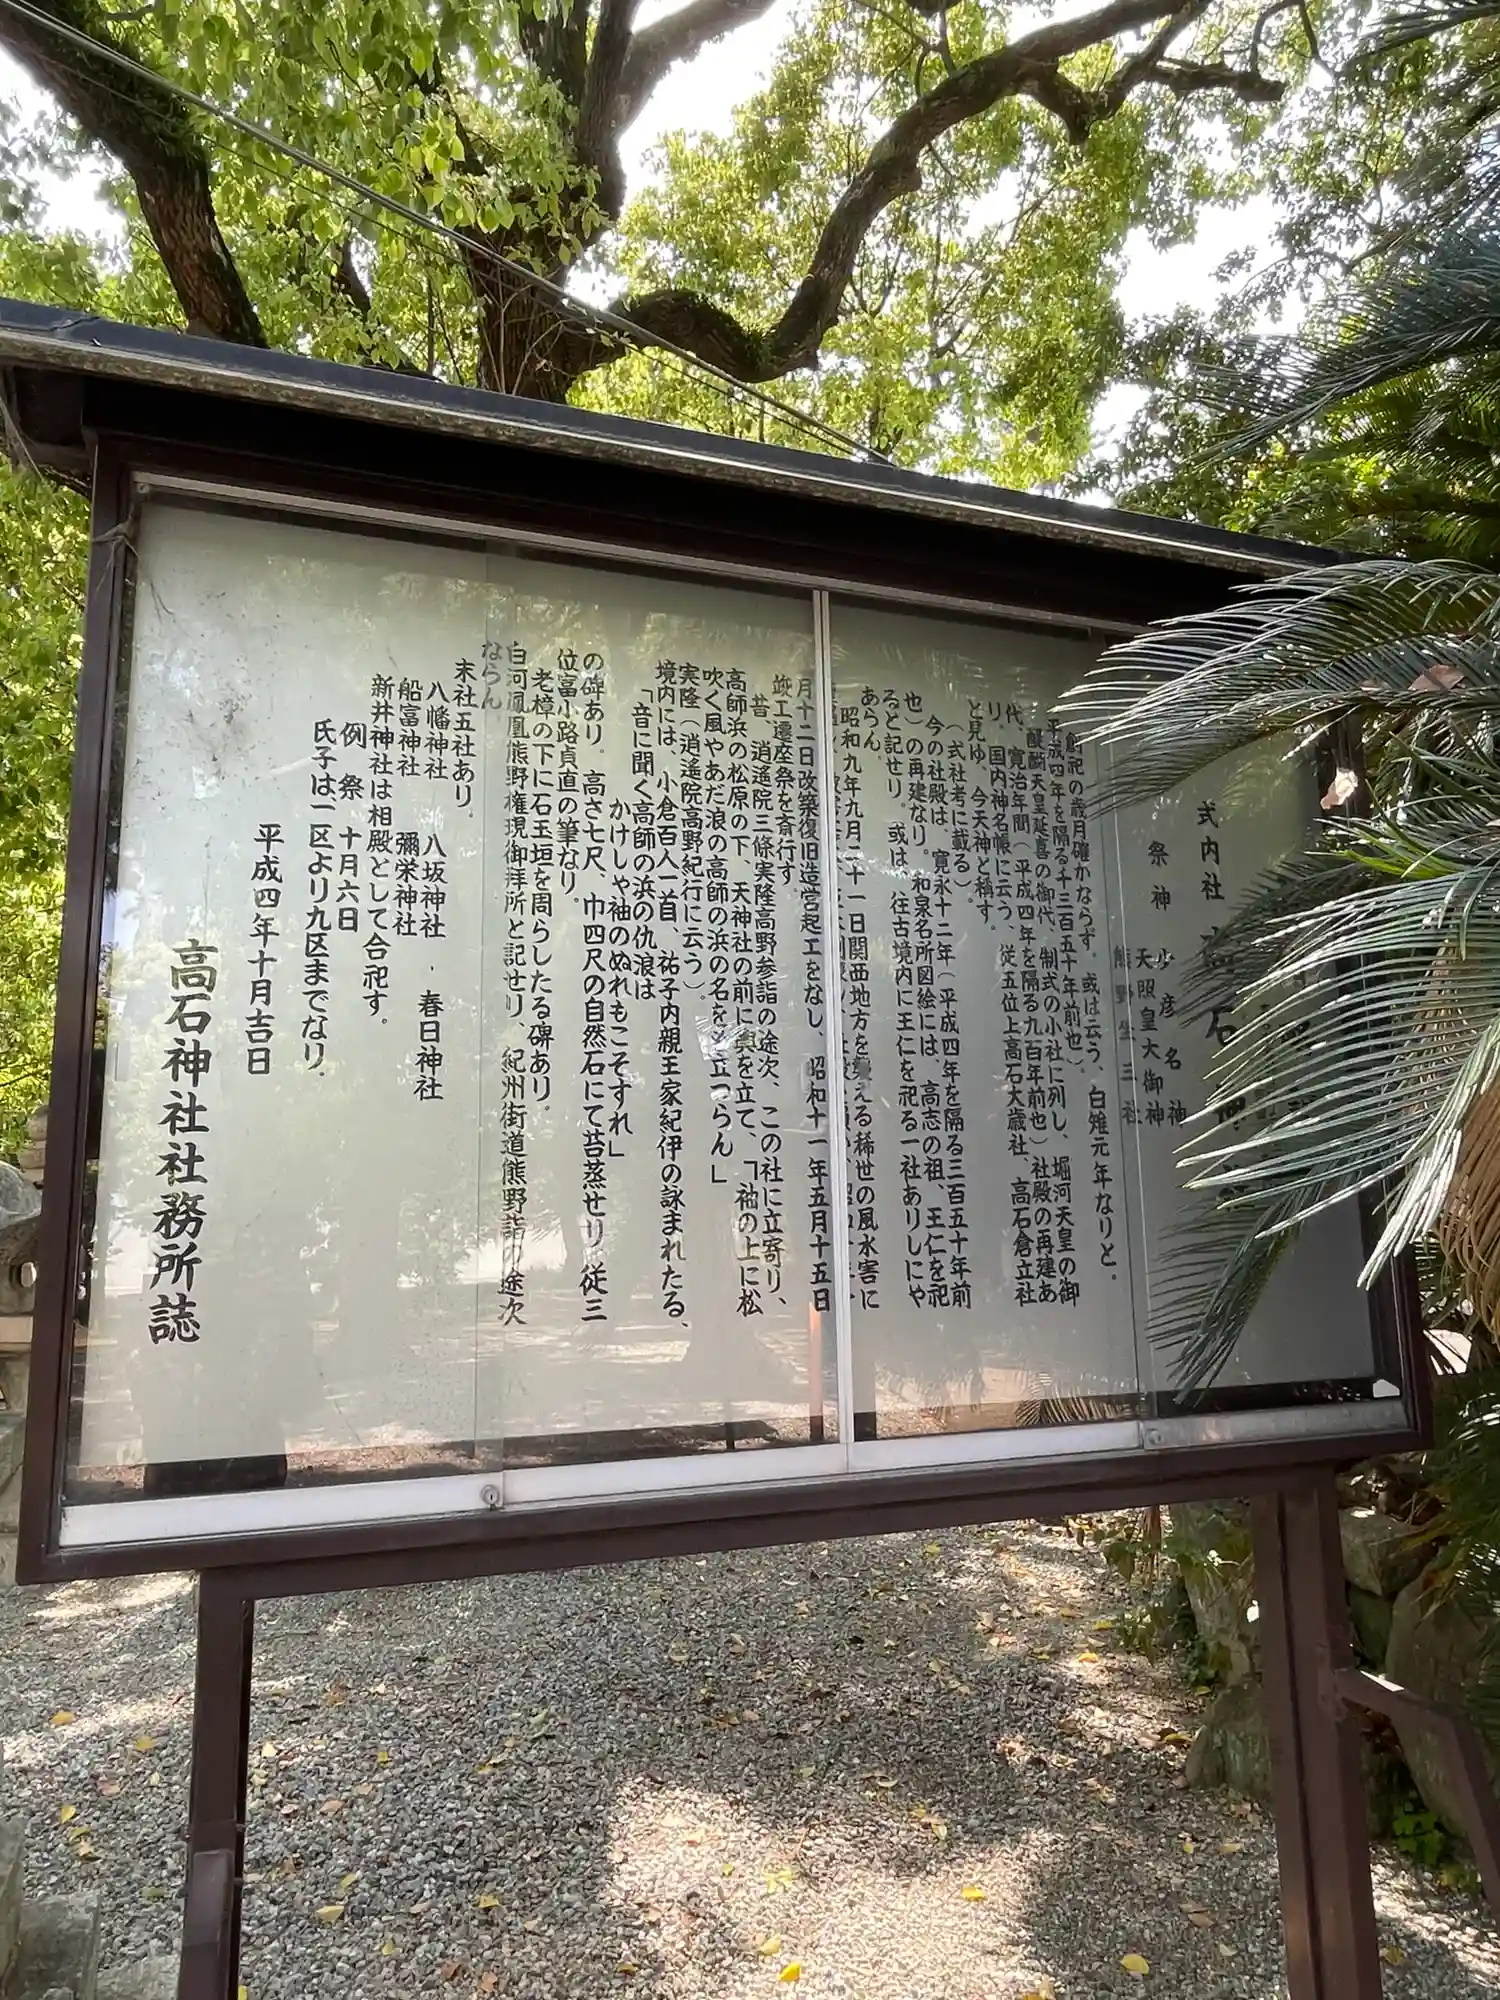 式内社 高石神社
祭神 少彦名神
天照皇大御神
熊野坐三社
創祀の歳月確かならず。或は云う、白雉元年なりと。
平成四年を隔る千三百五十年前也)。
醍醐天皇延喜の御代、制式の小社に列し、堀河天皇の御
代、寛治年間(平成四年を隔る九百年前也)社殿の再建あ
り。国内神名帳に云う、従五位上高石大歳社、高石倉立社
と見ゆ、今天神と稱す。
(式社考に載る)。
今の社殿は、寛永十二年(平成四年を隔る三百五十年前
也)の再建なり。和泉名所図絵には、高志の祖、王仁を祀
ると記せり。或は、往古境内に王仁を祀る一社ありしにや
あらん。
昭和九年九月二十一日関西地方を襲える稀世の風水害に
月十二日改築復旧造営起工をなし、昭和十一年五月十五日
竣工遷座祭を斎行す。
昔、逍遙院三條実隆高野参詣の途次、この社に立寄り、
高師浜の松原の下、天神社の前に輿を立て、「袖の上に松
吹く風やあだ浪の高師の浜の名をも立つらん」
実隆(逍遙院高野紀行に云う)。
境内には、小倉百人一首、祐子内親王家紀伊の詠まれたる、
「音に聞く高師の浜の仇浪は
かけしや袖のぬれもこそすれ」
の碑あり。高さ七尺、巾四尺の自然石にて苔蒸せり、従三
位富小路貞直の筆なり。
老樟の下に石玉垣を周らしたる碑あり。
白河鳳凰熊野権現御拝所と記せり、紀州街道熊野詣の途次
ならん。
末社五社あり。
八幡神社 八坂神社 春日神社
船富神社 彌栄神社
新井神社は相殿として合祀す。
例祭 十月六日
氏子は一区より九区までなり。
平成四年十月吉日
高石神社社務所誌